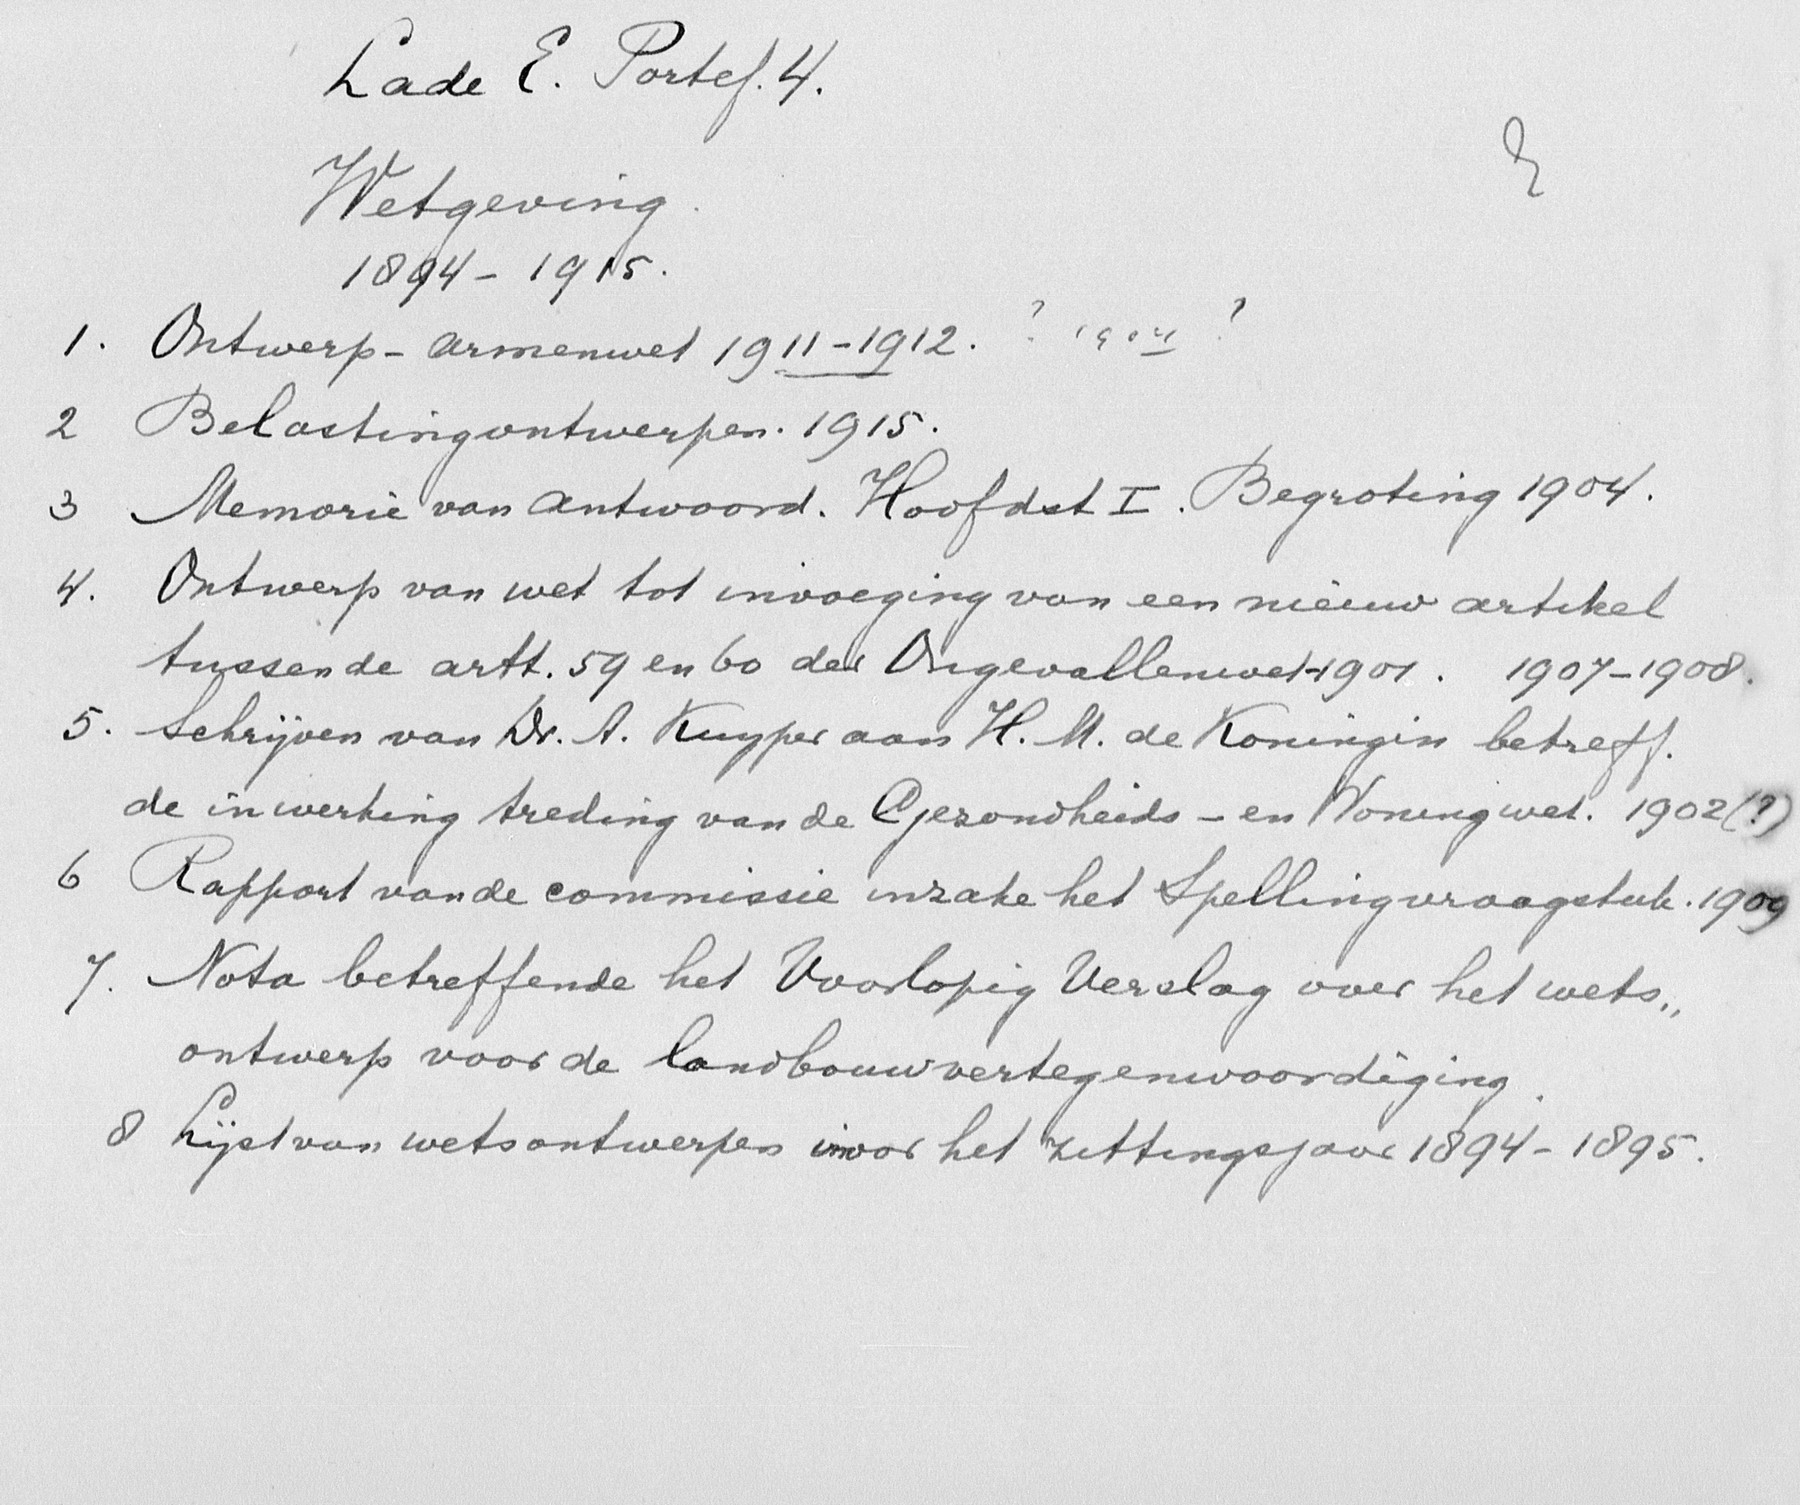 Lade E. Portef. 4.
E
Wetgeving.
1894 - 1915.
1. Ontwerp - armenwet 1911 - 1912. ? 1904 ?
2 Belastingontwerpen. 1915.
3 Memorie van antwoord. Hoofdst I. Begroting 1904.
4. Ontwerp van wet tot invoeging van een nieuw artikel
tussen de artt. 59 en 60 der Ongevallenwet-1901. 1907-1908.
5. Schrijven van Dr. A. Kuyper aan H. M. de Koningin betreff.
de inwerking treding van de Gezondheids - en Woningwet. 1902 (?)
6 Rapport van de commissie inzake het Spellingvraagstuk. 1909
7. Nota betreffende het Voorlopig Verslag over het wets„
ontwerp voor de landbouwvertegenwoordiging.
8 Lijst van wetsontwerpen voor het zittingsjaar 1894 - 1895.